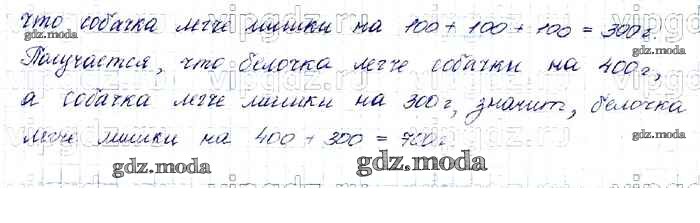 что собачка легче мишки на 100 + 100 + 100 = 300 г.
Получается, что белочка легче собачки на 400 г,
а собачка легче мишки на 300 г, значит, белочка
легче мишки на 400 + 300 = 700 г.
gdz.moda
gdz.moda
gdz.moda